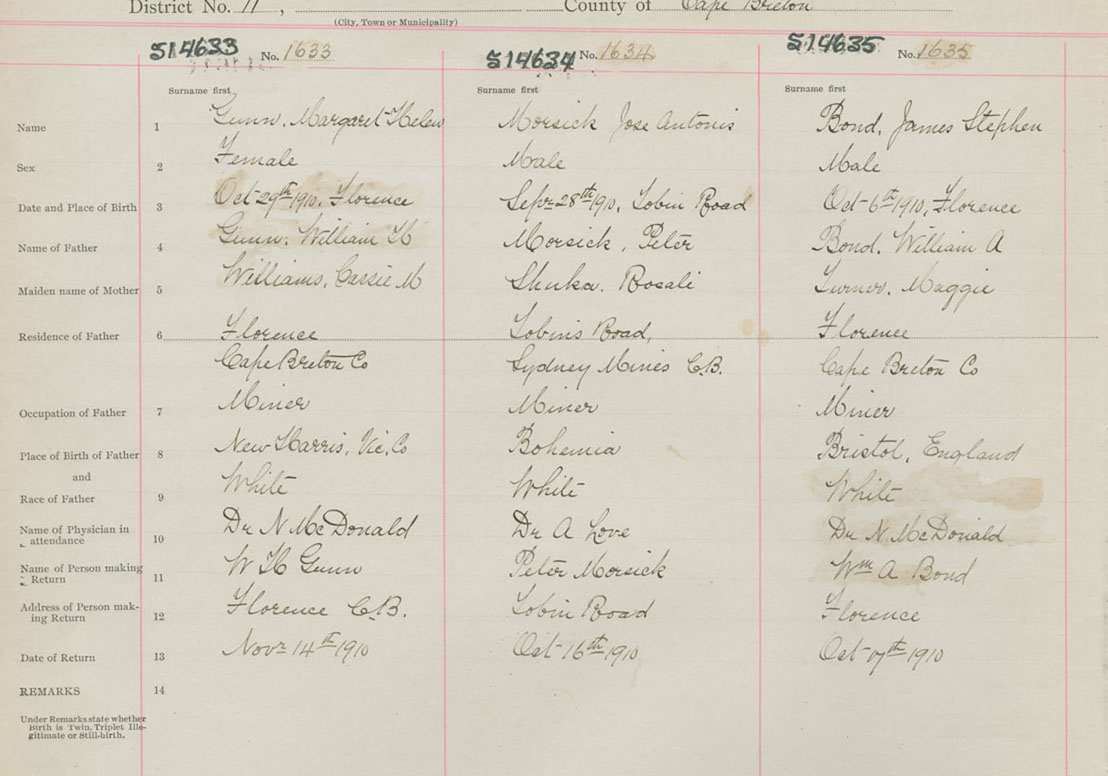 District No. 11, County of Cape Breton
(City, Town or Municipality)
S14633 No. 1633 S14634 No. 1634 S14635 No. 1635
Surname first Surname first Surname first
Name 1 Gunn, Margaret Helen Morsick Jose Antonis Bond, James Stephen
Sex 2 Female Male Male
Date and Place of Birth 3 Oct 29th 1910, Florence Sepr 28th 1910, Tobin Road Oct 6th 1910, Florence
Name of Father 4 Gunn, William H Morsick, Peter Bond, William A
Maiden name of Mother 5 Williams, Cassie M Shuka, Rosali Turner, Maggie
Residence of Father 6 Florence Tobins Road, Florence
Cape Breton Co Sydney Mines C.B. Cape Breton Co
Occupation of Father 7 Miner Miner Miner
Place of Birth of Father 8 New Harris, Vic, Co Bohemia Bristol, England
and
Race of Father 9 White White White
Name of Physician in
attendance 10 Dr N McDonald Dr A Love Dr N McDonald
Name of Person making
Return 11 W H Gunn Peter Morsick Wm A Bond
Address of Person mak-
ing Return 12 Florence C.B. Tobin Road Florence
Date of Return 13 Novr 14th 1910 Oct 16th 1910 Oct 17th 1910
REMARKS 14
Under Remarks state whether
Birth is Twin, Triplet Ille-
gitimate or Still-birth.